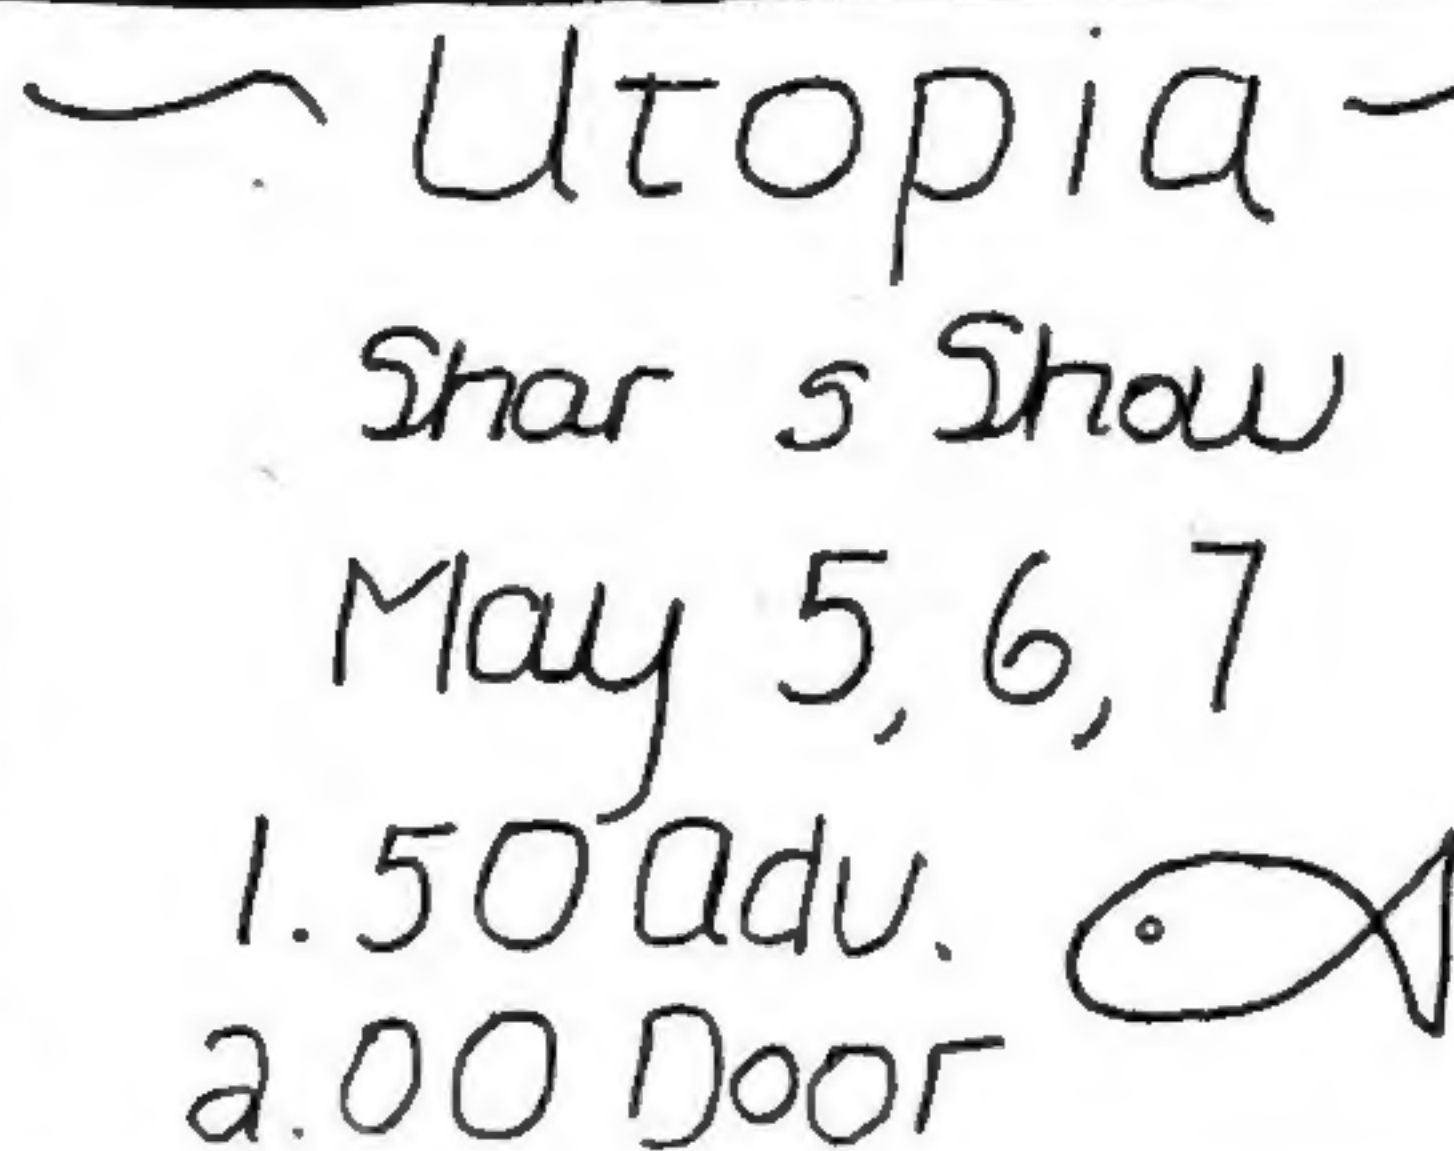 ~ Utopia ~
Shar s Show
May 5, 6, 7
1.50 adv.
2.00 Door